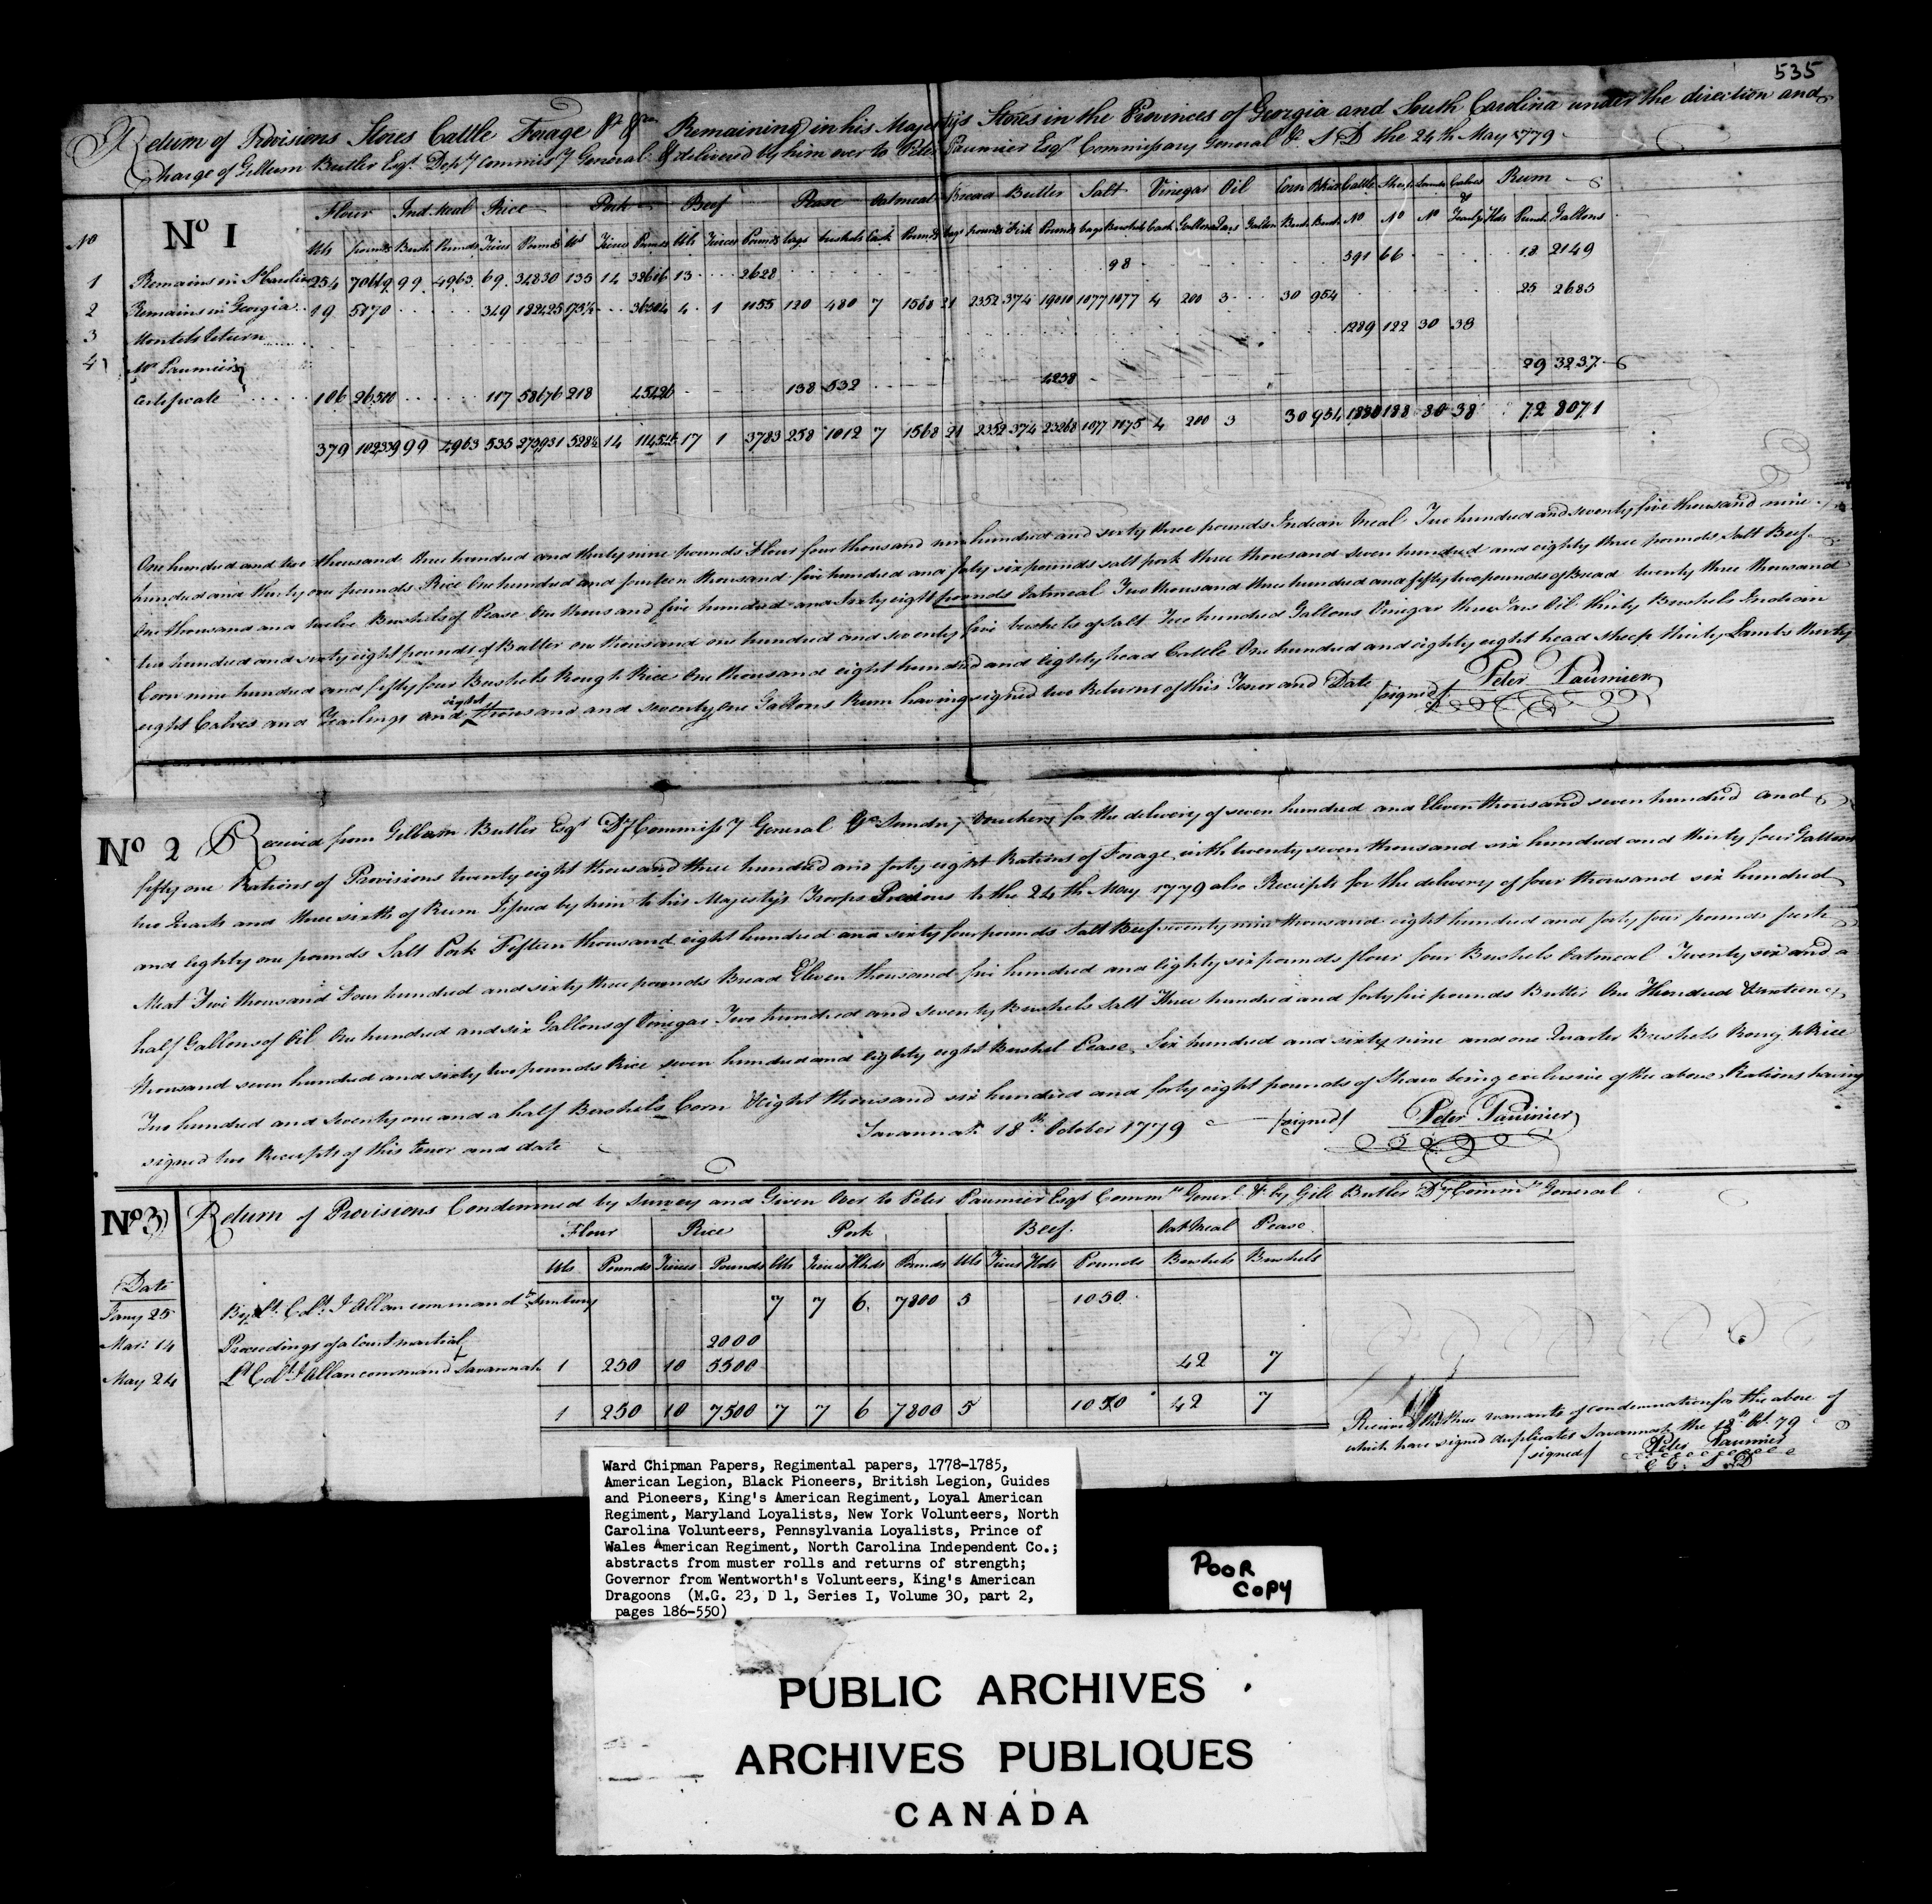 535
Return of Provisions Stores Cattle Forage &c &ca Remaining in his Majesty's Stores in the Provinces of Georgia and South Carolina under the direction and
Charge of Gillium Butler Esqr. Depty Commissy General & delivered by him over to Peter Paumier Esqr Commissary General &c S D the 24th May 1779
No 1
No Flour Ind. Meal Rice Pork Beef Pease Oatmeal Bread Butter Salt Vinegar Oil Corn Cattle Sheep Lambs Calves & Rum
bls pounds Bush Pounds Tierces Pounds bls Tierces Pounds bls Tierces Pounds bags bushels Cask Pounds bags pounds Firk Pounds bags Bushels Cask Gallons Jars Gallon Bush Bush No No No Yearlgs Hds Punch Gallons
1 Remains in S Carolina 254 70669 99 4963 69 34830 135 14 32616 13 2628 98 591 66 18 2149
2 Remains in Georgia 19 5870 349 182425 173½ 36304 4 1 1155 120 480 7 1568 21 2352 374 19010 1077 1077 4 200 3 30 954 25 2685
3 Montels Return 1289 122 30 38
4 Mr Paumier's
Certificate 106 26500 117 58676 218 45426 138 532 4258 29 3237
379 102339 99 4963 535 275931 528½ 14 114546 17 1 3783 258 1012 7 1568 21 2352 374 23268 1077 1175 4 200 3 30 954 1880 188 30 38 72 8071
One hundred and two thousand three hundred and thirty nine pounds Flour four thousand nine hundred and sixty three pounds Indian Meal Two hundred and seventy five thousand nine
hundred and thirty one pounds Rice One hundred and fourteen thousand five hundred and forty six pounds salt pork three thousand seven hundred and eighty three pounds Salt Beef
One thousand and twelve Bushels of Pease One thousand five hundred and sixty eight pounds Oatmeal Two thousand three hundred and fifty two pounds of Bread twenty three thousand
two hundred and sixty eight pounds of Butter one thousand one hundred and seventy five bushels of salt Two hundred Gallons Vinegar three Jars Oil thirty Bushels Indian
Corn nine hundred and fifty four Bushels Rough Rice One thousand eight hundred and eighty head Cattle One hundred and eighty eight head sheep thirty Lambs thirty
eight Calves and Yearlings and eight thousand and seventy one Gallons Rum having signed two Returns of this Tenor and Date /signed/ Peter Paumier
No 2 Received from Gillium Butler Esqr Dy Commissy General &c Sundry Vouchers for the delivery of seven hundred and Eleven thousand seven hundred and
fifty one Rations of Provisions twenty eight thousand three hundred and forty eight Rations of Forage with twenty seven thousand six hundred and thirty four Gallons
two Quarts and three sixth of Rum Issued by him to his Majesty's Troops Previous to the 24th May 1779 also Receipts for the delivery of four thousand six hundred
and eighty one pounds Salt Pork Fifteen thousand eight hundred and sixty four pounds Salt Beef seventy nine thousand eight hundred and forty four pounds fresh
Meat Two thousand Four hundred and sixty three pounds Bread Eleven thousand five hundred and Eighty six pounds flour four Bushels Oatmeal Twenty six and a
half Gallons of Oil One hundred and six Gallons of Vinegar Two hundred and seventy Bushels Salt Three hundred and forty five pounds Butter One Hundred
thousand seven hundred and sixty two pounds Rice seven hundred and eighty eight Bushel Pease, Six hundred and sixty nine and one Quarter Bushels Rough Rice
Two hundred and Seventy one and a half Bushels Corn Eight thousand six hundred and forty eight pounds of Straw being exclusive of the above Rations having
signed two Receipts of this tenor and date Savannah 18th October 1779 /signed/ Peter Paumier
No 3 Return of Provisions Condemned by Survey and Given Over to Peter Paumier Esqr Commry General &c by Gile Butler Dy Commry General
Flour Rice Pork Beef Oat Meal Pease
bls Pounds Tierces Pounds bls Tierces Hhds Pounds bls Tierces Hhds Pounds Bushels Bushels
Date
Jany 25 By Lt. Colt. I Allan commandt Sunbury 7 7 6 7800 5 1050
Mar: 14 Proceedings of a Court martial 2000
May 24 Lt Colt I Allan command Savannah 1 250 10 5500 42 7
1 250 10 7500 7 7 6 7800 5 1050 42 7
Received the three warrants of condemnation for the above of
which have signed duplicates Savannah the 18th Octr 79
/signed/ Peter Paumier
C G. S D
Ward Chipman Papers, Regimental papers, 1778-1785,
American Legion, Black Pioneers, British Legion, Guides
and Pioneers, King's American Regiment, Loyal American
Regiment, Maryland Loyalists, New York Volunteers, North
Carolina Volunteers, Pennsylvania Loyalists, Prince of
Wales American Regiment, North Carolina Independent Co.;
abstracts from muster rolls and returns of strength;
Governor from Wentworth's Volunteers, King's American
Dragoons (M.G. 23, D 1, Series I, Volume 30, part 2,
pages 186-550)
POOR
COPY
PUBLIC ARCHIVES
ARCHIVES PUBLIQUES
CANADA